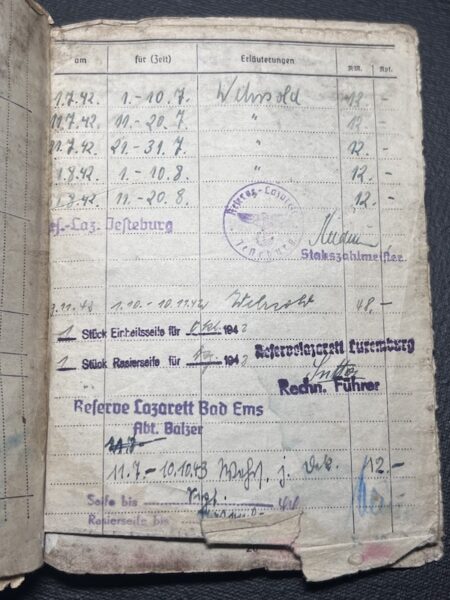 am für (Zeit) Erläuterungen RM. Rpf.
1.7.42. 1.-10.7. Wehrsold 12.-
11.7.42. 11.-20.7. " 12.-
21.-31.7. " 12.-
1.8.42. 1.-10.8. " 12.-
11.-20.8. " 12.-
Res.-Laz. Jesteburg
Reserve-Lazarett
Jesteburg
Stabszahlmeister
1.10.-10.11.42 Wehrsold 48.-
1 Stück Einheitsseife für Okt. 194
1 Stück Rasierseife für 194
Reservelazarett Luxemburg
Rechn. Führer
Reserve Lazarett Bad Ems
Abt. Balzer
11.7.-10.10.43 Dek. 12.-
Seife bis
Rasierseife bis